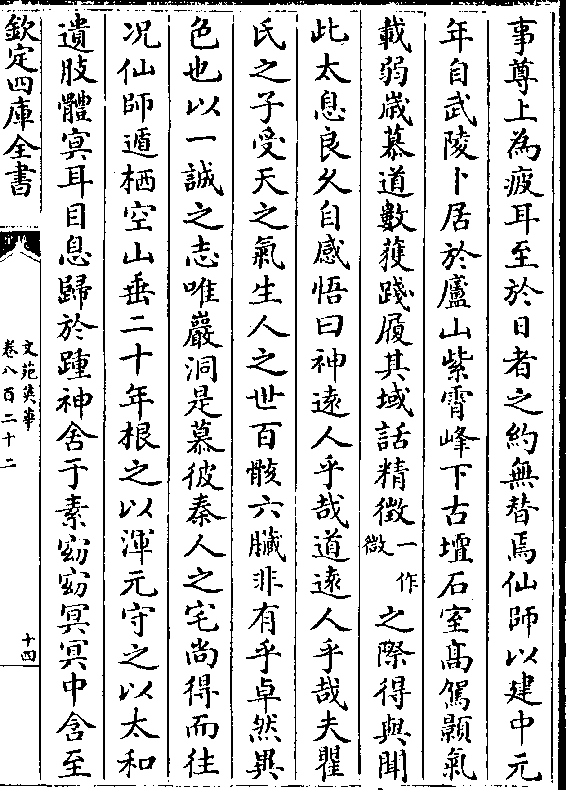 事尊上為疲耳至於日者之約無替焉仙師以建中元
年自武陵卜居於廬山紫霄峰下古壇石室髙駕顥氣
載弱嵗慕道數獲踐履其域話精徴一作微之際得與聞
此太息良久自感悟曰神遠人乎哉道遠人乎哉夫瞿
氏之子受天之氣生人之世百骸六臟非有乎卓然異
色也以一誠之志唯巖洞是慕彼秦人之宅尚得而往
况仙師遁栖空山垂二十年根之以渾元守之以太和
遺肢體㝠耳目息歸於踵神舍于素窈窈冥冥中含至
欽定四庫全書
文苑英華
卷八百二十二
十四